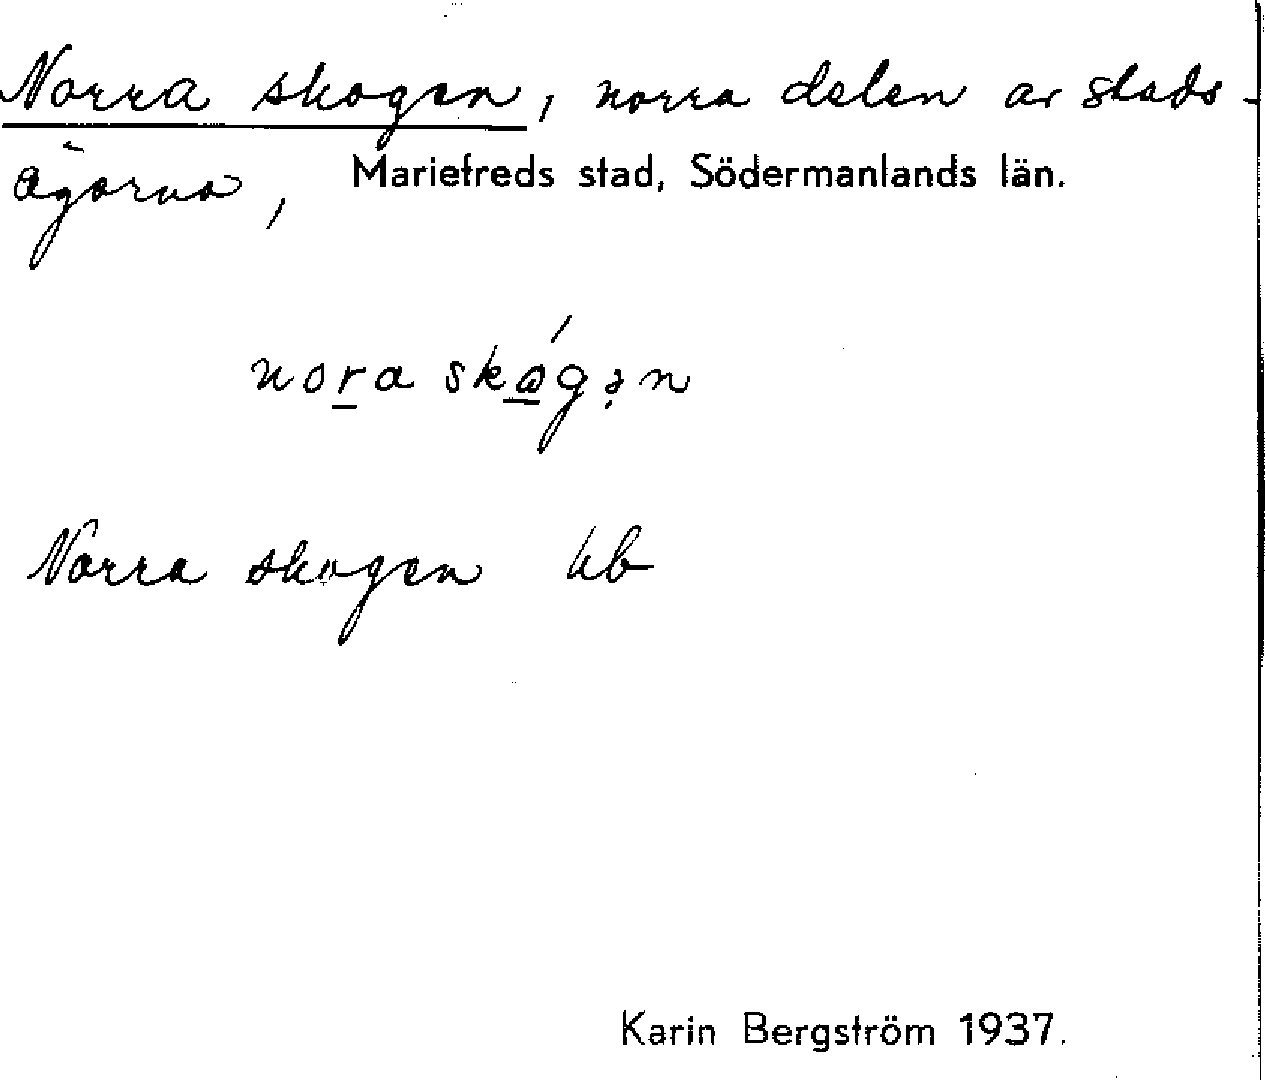 Norra skogen, norra delen av stads-
ägorna, Mariefreds stad, Södermanlands län.
nora skogən
Norra skogen kb
Karin Bergström 1937.